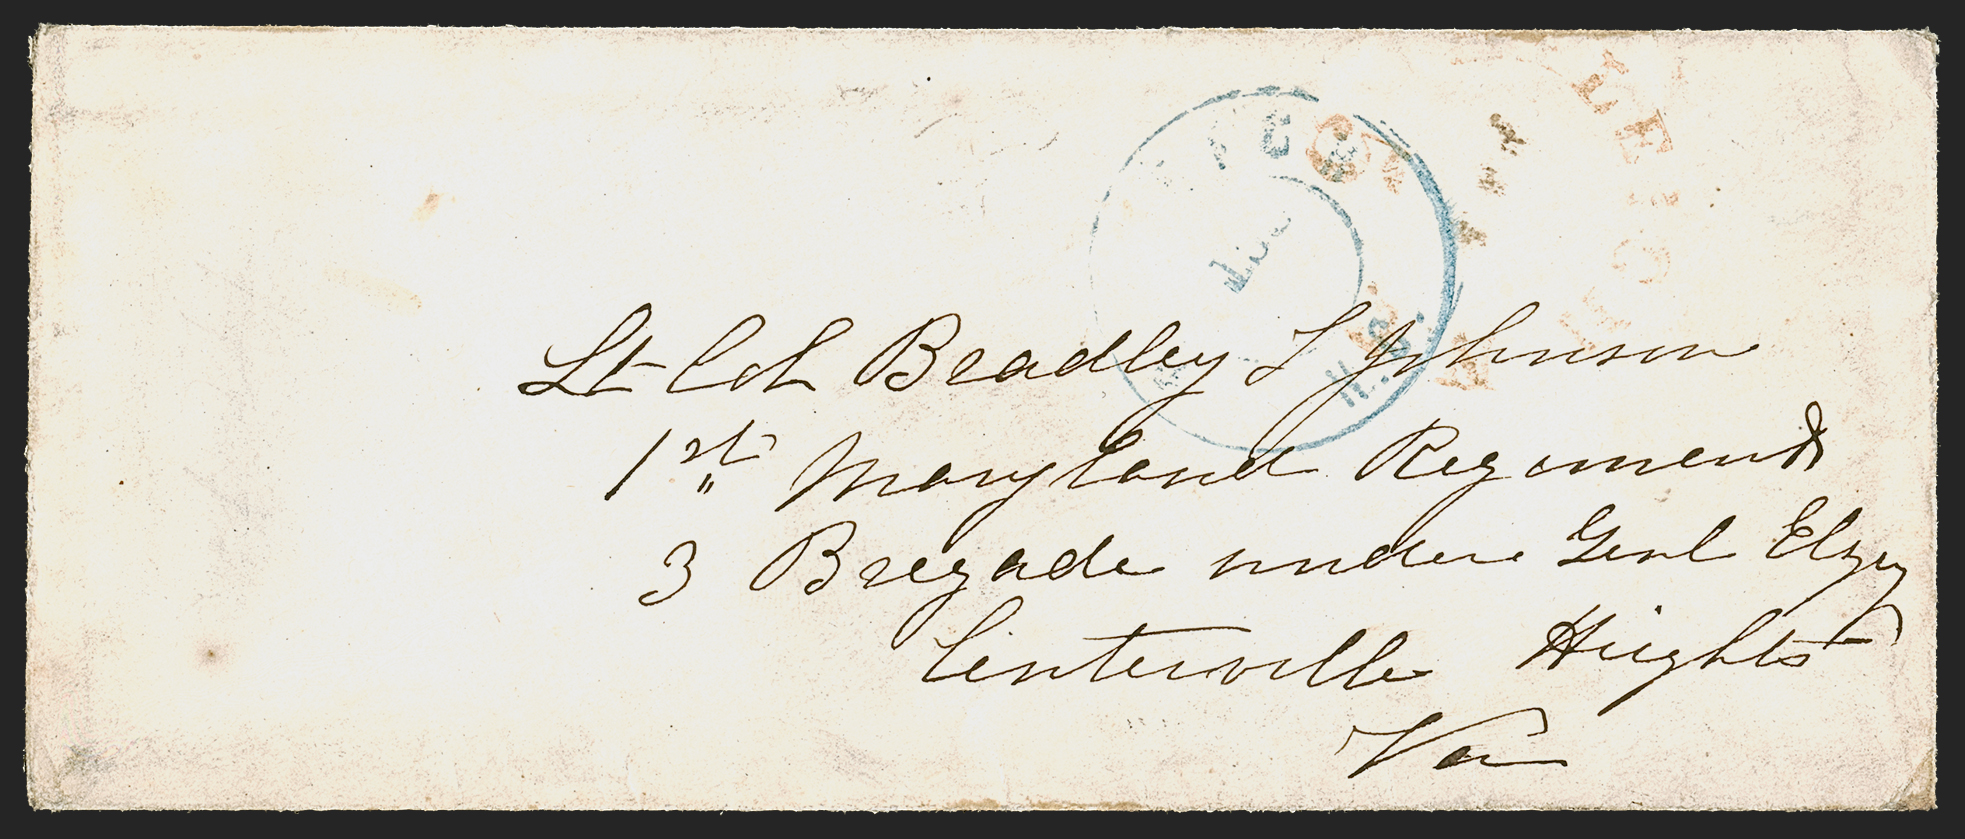 Lt Col Bradley T Johnson
1st Maryland Regiment
3 Bregade under Genl Elzey
Centerville Heights
Va